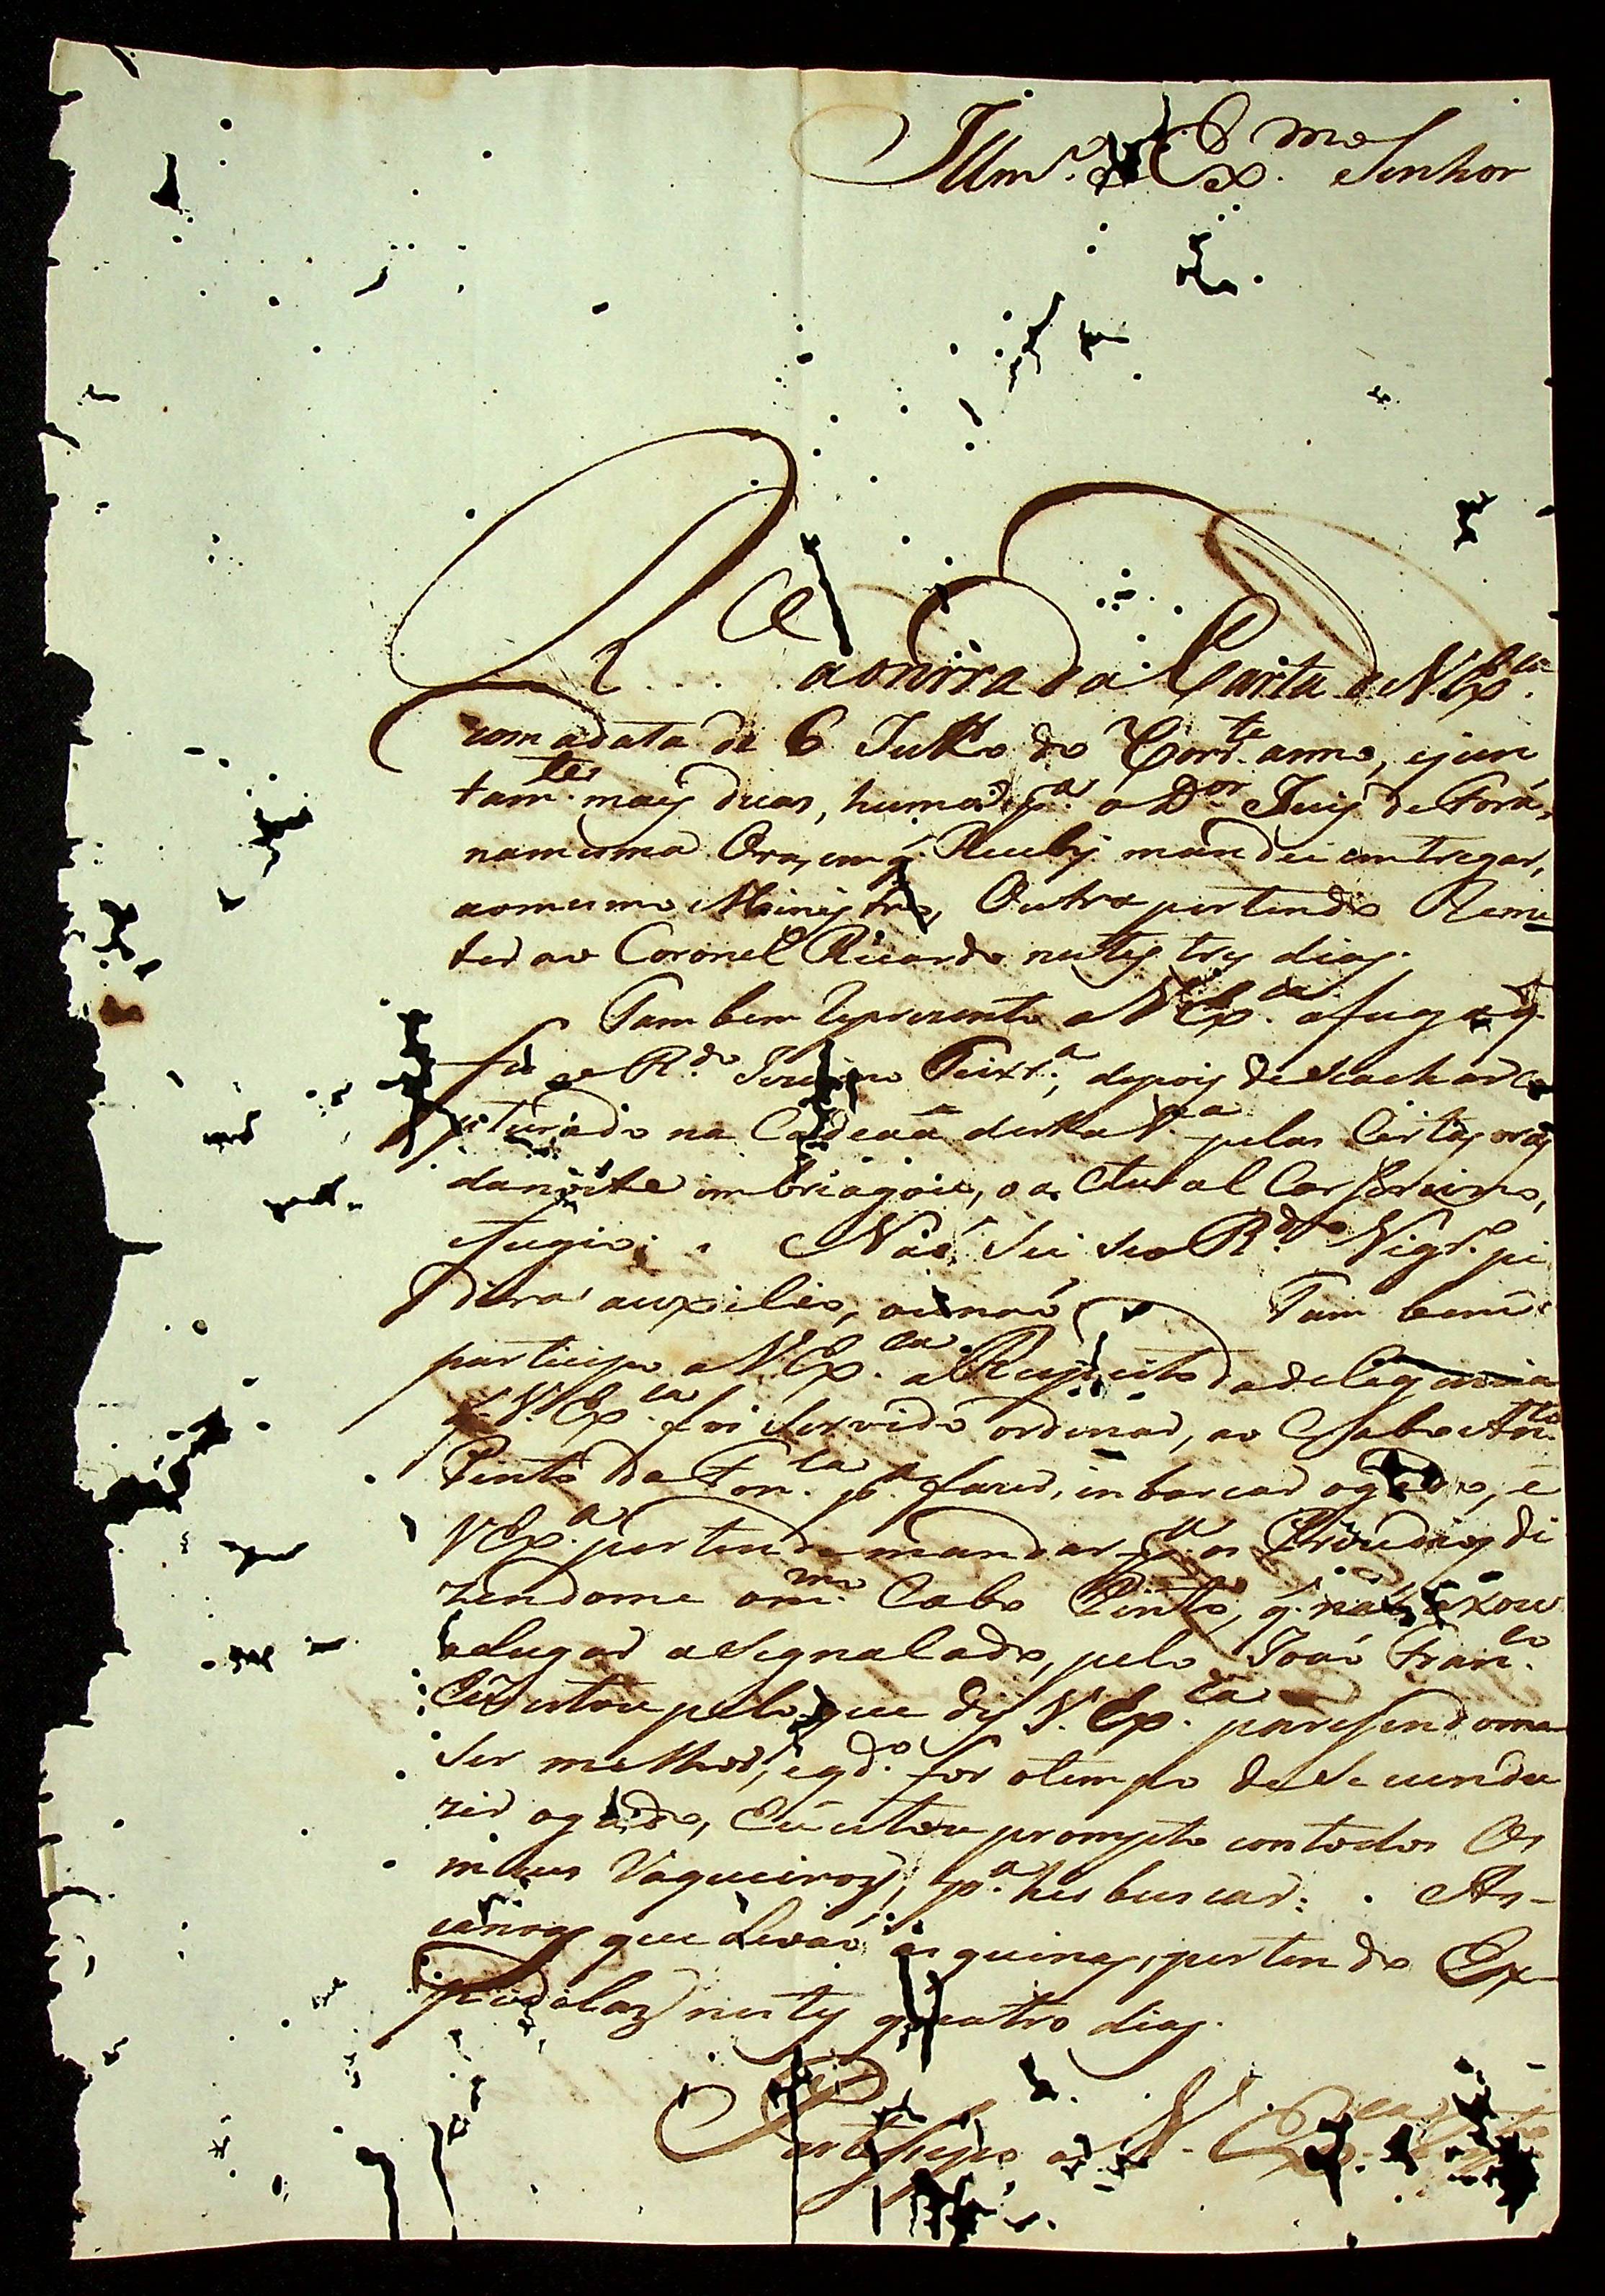 Illm.º e Ex.mo Senhor
Re a onrra da Carta de V Ex.cia
com a data de 6 Julho do Corr.te anno, e jun
tam.te mais duas, huma p.a o D.or Juis de Fora,
na mesma Ora, em q̃ Recebỹ mandei emtregar,
ao mesmo Ministro, Outra pertendo Reme
ter ao Coronel Ricardo nestes tres dias.
Tambem Reprezento a V Ex.cia a fuga q̃
fes o R.do Teixr.a, depois de se achar Ca
pturado na Cadeaã desta V.a pelas Certas oras
da noite embriagou, o a Ctual Carsereiro,
e fugio: Não Sei se o R.do Vigr.o pi
dira auxilio, ou naõ Tam bem
partcipo a V Ex.cia a Respeito da deligencia
q̃ V. Ex.cia foi Servido ordenar, ao Cabo Ant.o
Pinto da Fon.ca p.a fazer, inbarcar o gado, e
V Ex.a pertende mandar p.a os
zendome o m.mo Cabo Pinto, q̃ naõ axou
o lugar aSignalado, pelo Joaõ Fran.co
Eu estou pelo que dis V. Ex.cia paresendome
Ser melhor, e qd.o for o tempo de se cundu
zir o gado, Eu estou prompto com todos Os
meus Vaqueiros, p.a hir buscar: As
canoas que Levaõ as quinas, pertendo Ex
pedilas nestes quatro dias.
Partesipo a V. Ex.cia